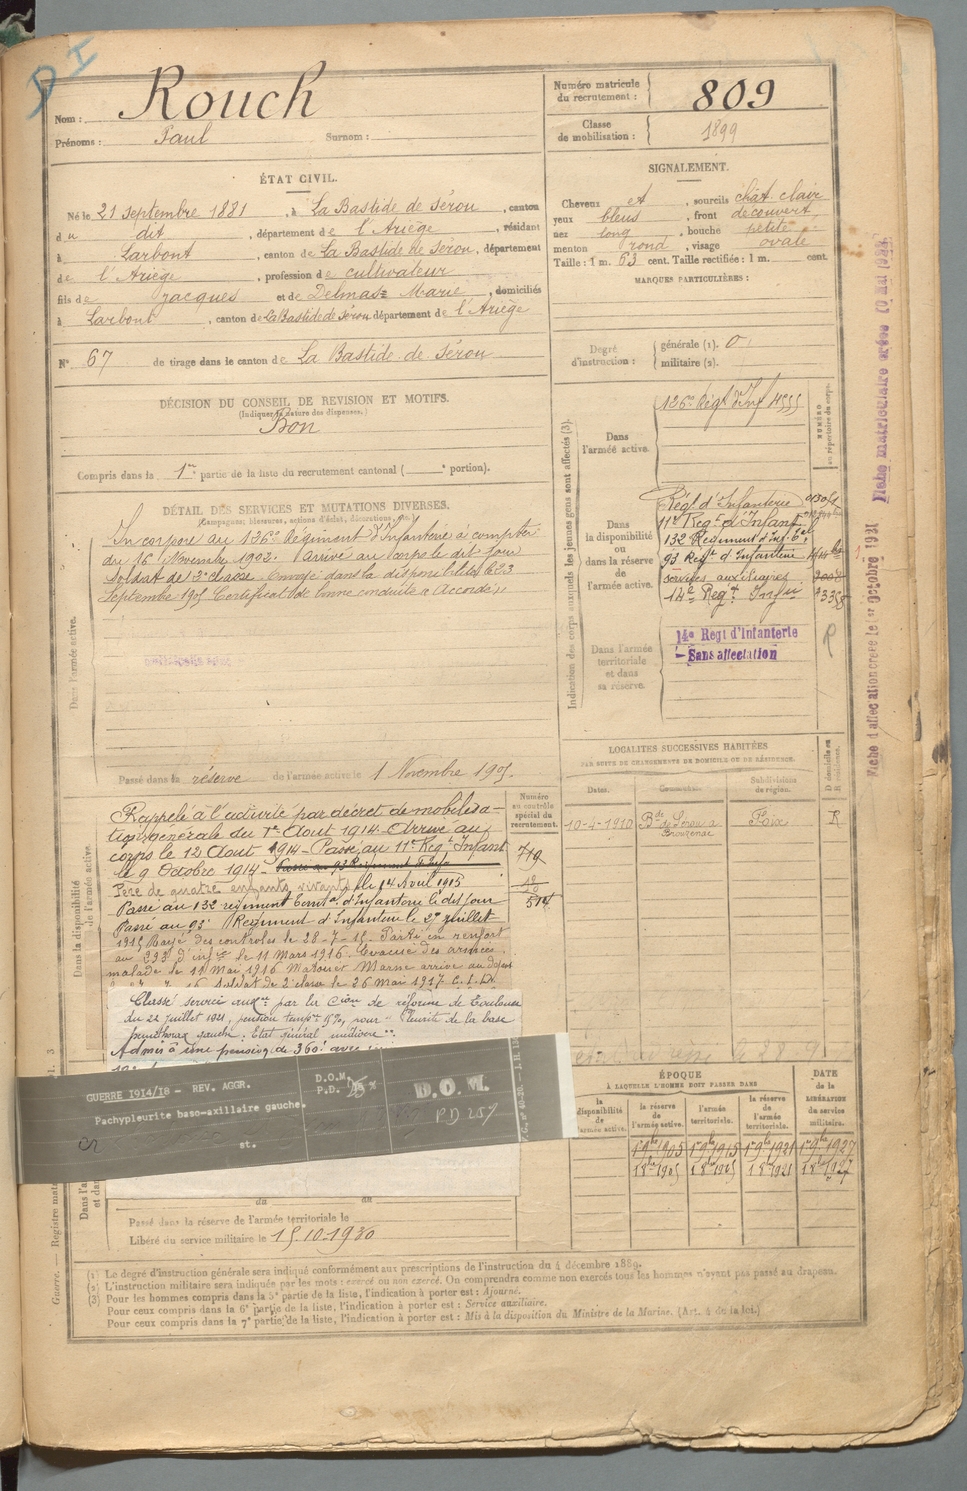 Nom : Rouch
Prénoms : Paul Surnom :
Numéro matricule du recrutement : 809
Classe de mobilisation : 1899
ÉTAT CIVIL.
Né le 21 Septembre 1881, à La Bastide de Sérou, canton
du dit, département de l'Ariège, résidant
à Larbont, canton de La Bastide de Sérou, département
de l'Ariège, profession de cultivateur
fils de Jacques et de Delmas Marie, domiciliés
à Larbont, canton de La Bastide de Sérou département de l'Ariège
N° 67 de tirage dans le canton de La Bastide de Sérou
SIGNALEMENT.
Cheveux et, sourcils chât. clairs
yeux bleus, front découvert,
nez long, bouche petite
menton rond, visage ovale
Taille : 1 m. 63 cent. Taille rectifiée : 1 m. cent.
MARQUES PARTICULIÈRES :
Degré d'instruction :
générale (1). 0
militaire (2).
DÉCISION DU CONSEIL DE REVISION ET MOTIFS.
(Indiquer la nature des dispenses.)
Bon
Compris dans la 1re partie de la liste du recrutement cantonal ( e portion).
DÉTAIL DES SERVICES ET MUTATIONS DIVERSES.
(Campagnes, blessures, actions d'éclat, décorations, etc.)
Dans l'armée active.
Incorporé au 126e Régiment d'Infanterie à compter
du 16 Novembre 1902. Arrivé au corps le dit jour
soldat de 2e classe. Envoyé dans la disponibilité le 23
Septembre 1905 Certificat de bonne conduite "Accordé"
Passé dans la réserve de l'armée active le 1 Novembre 1905.
Indication des corps auxquels les jeunes gens sont affectés (3).
NUMÉRO au répertoire du corps.
Dans l'armée active.
126e Régt d'Inf
Dans la disponibilité ou dans la réserve de l'armée active.
Régt d'Infanterie
11e Regt d'Infant
132 Régiment d'Inf
93 Regt d'Infanterie
services auxiliaires
14e Regt Infie
Dans l'armée territoriale et dans sa réserve.
14e Regt d'Infanterie
- Sans affectation
R
Fiche matriculaire créée 10 mai
Fiche d'affectation créée le 1er Octobre 1931
LOCALITÉS SUCCESSIVES HABITÉES
PAR SUITE DE CHANGEMENTS DE DOMICILE OU DE RÉSIDENCE.
Dates. Communes. Subdivisions de région. D domicile ou R résidence.
10-4-1910 Bde de Sérou à Brouzenac Foix R
Dans la disponibilité
de l'armée active.
Numéro au contrôle spécial du recrutement.
719
Rappelé à l'activité par décret de mobilisa-
tion générale du 1er Août 1914. Arrivé au
corps le 12 Août 1914 - Passé au 11e Regt Infant
le 9 Octobre 1914 - Passé au 93 Régiment d'Inf
Père de quatre enfants vivants le 14 Avril 1915
Passé au 132 régiment Territal d'Infanterie le dit jour
Passé au 93e Regiment d'Infanterie le 27 juillet
1915 Rayé des contrôles le 28-7-15. Parti en renfort
au 293 d'infie le 11 Mars 1916. Evacué des armées
malade le 11 Mai 1916 Marne arrivé au dépôt
Soldat de 2e classe le 26 Mai 1917
Classé service auxre par la Cion de réforme de Toulouse
du 22 juillet 1921, pension tempre 15%, pour "Pleurite de la base
hémithorax gauche. Etat général médiocre".
Admis à une pension de 360f avec
GUERRE 1914/18 - REV. AGGR.
Pachypleurite baso-axillaire gauche.
st.
D.O.M.
P.D.
D.O.M.
P.D 25%
ÉPOQUE
À LAQUELLE L'HOMME DOIT PASSER DANS
DATE de la LIBÉRATION du service militaire.
la disponibilité de l'armée active.
la réserve de l'armée active.
l'armée territoriale.
la réserve de l'armée territoriale.
1 9bre 1905 1 9bre 1915 1 9bre 1921 1 9bre 1927
Passé dans la réserve de l'armée territoriale le
Libéré du service militaire le 15.10.1930
(1) Le degré d'instruction générale sera indiqué conformément aux prescriptions de l'instruction du 4 décembre 1889.
(2) L'instruction militaire sera indiquée par les mots : exercé ou non exercé. On comprendra comme non exercés tous les hommes n'ayant pas passé au drapeau.
(3) Pour les hommes compris dans la 5e partie de la liste, l'indication à porter est : Ajourné.
Pour ceux compris dans la 6e partie de la liste, l'indication à porter est : Service auxiliaire.
Pour ceux compris dans la 7e partie de la liste, l'indication à porter est : Mis à la disposition du Ministre de la Marine. (Art. 4 de la loi.)